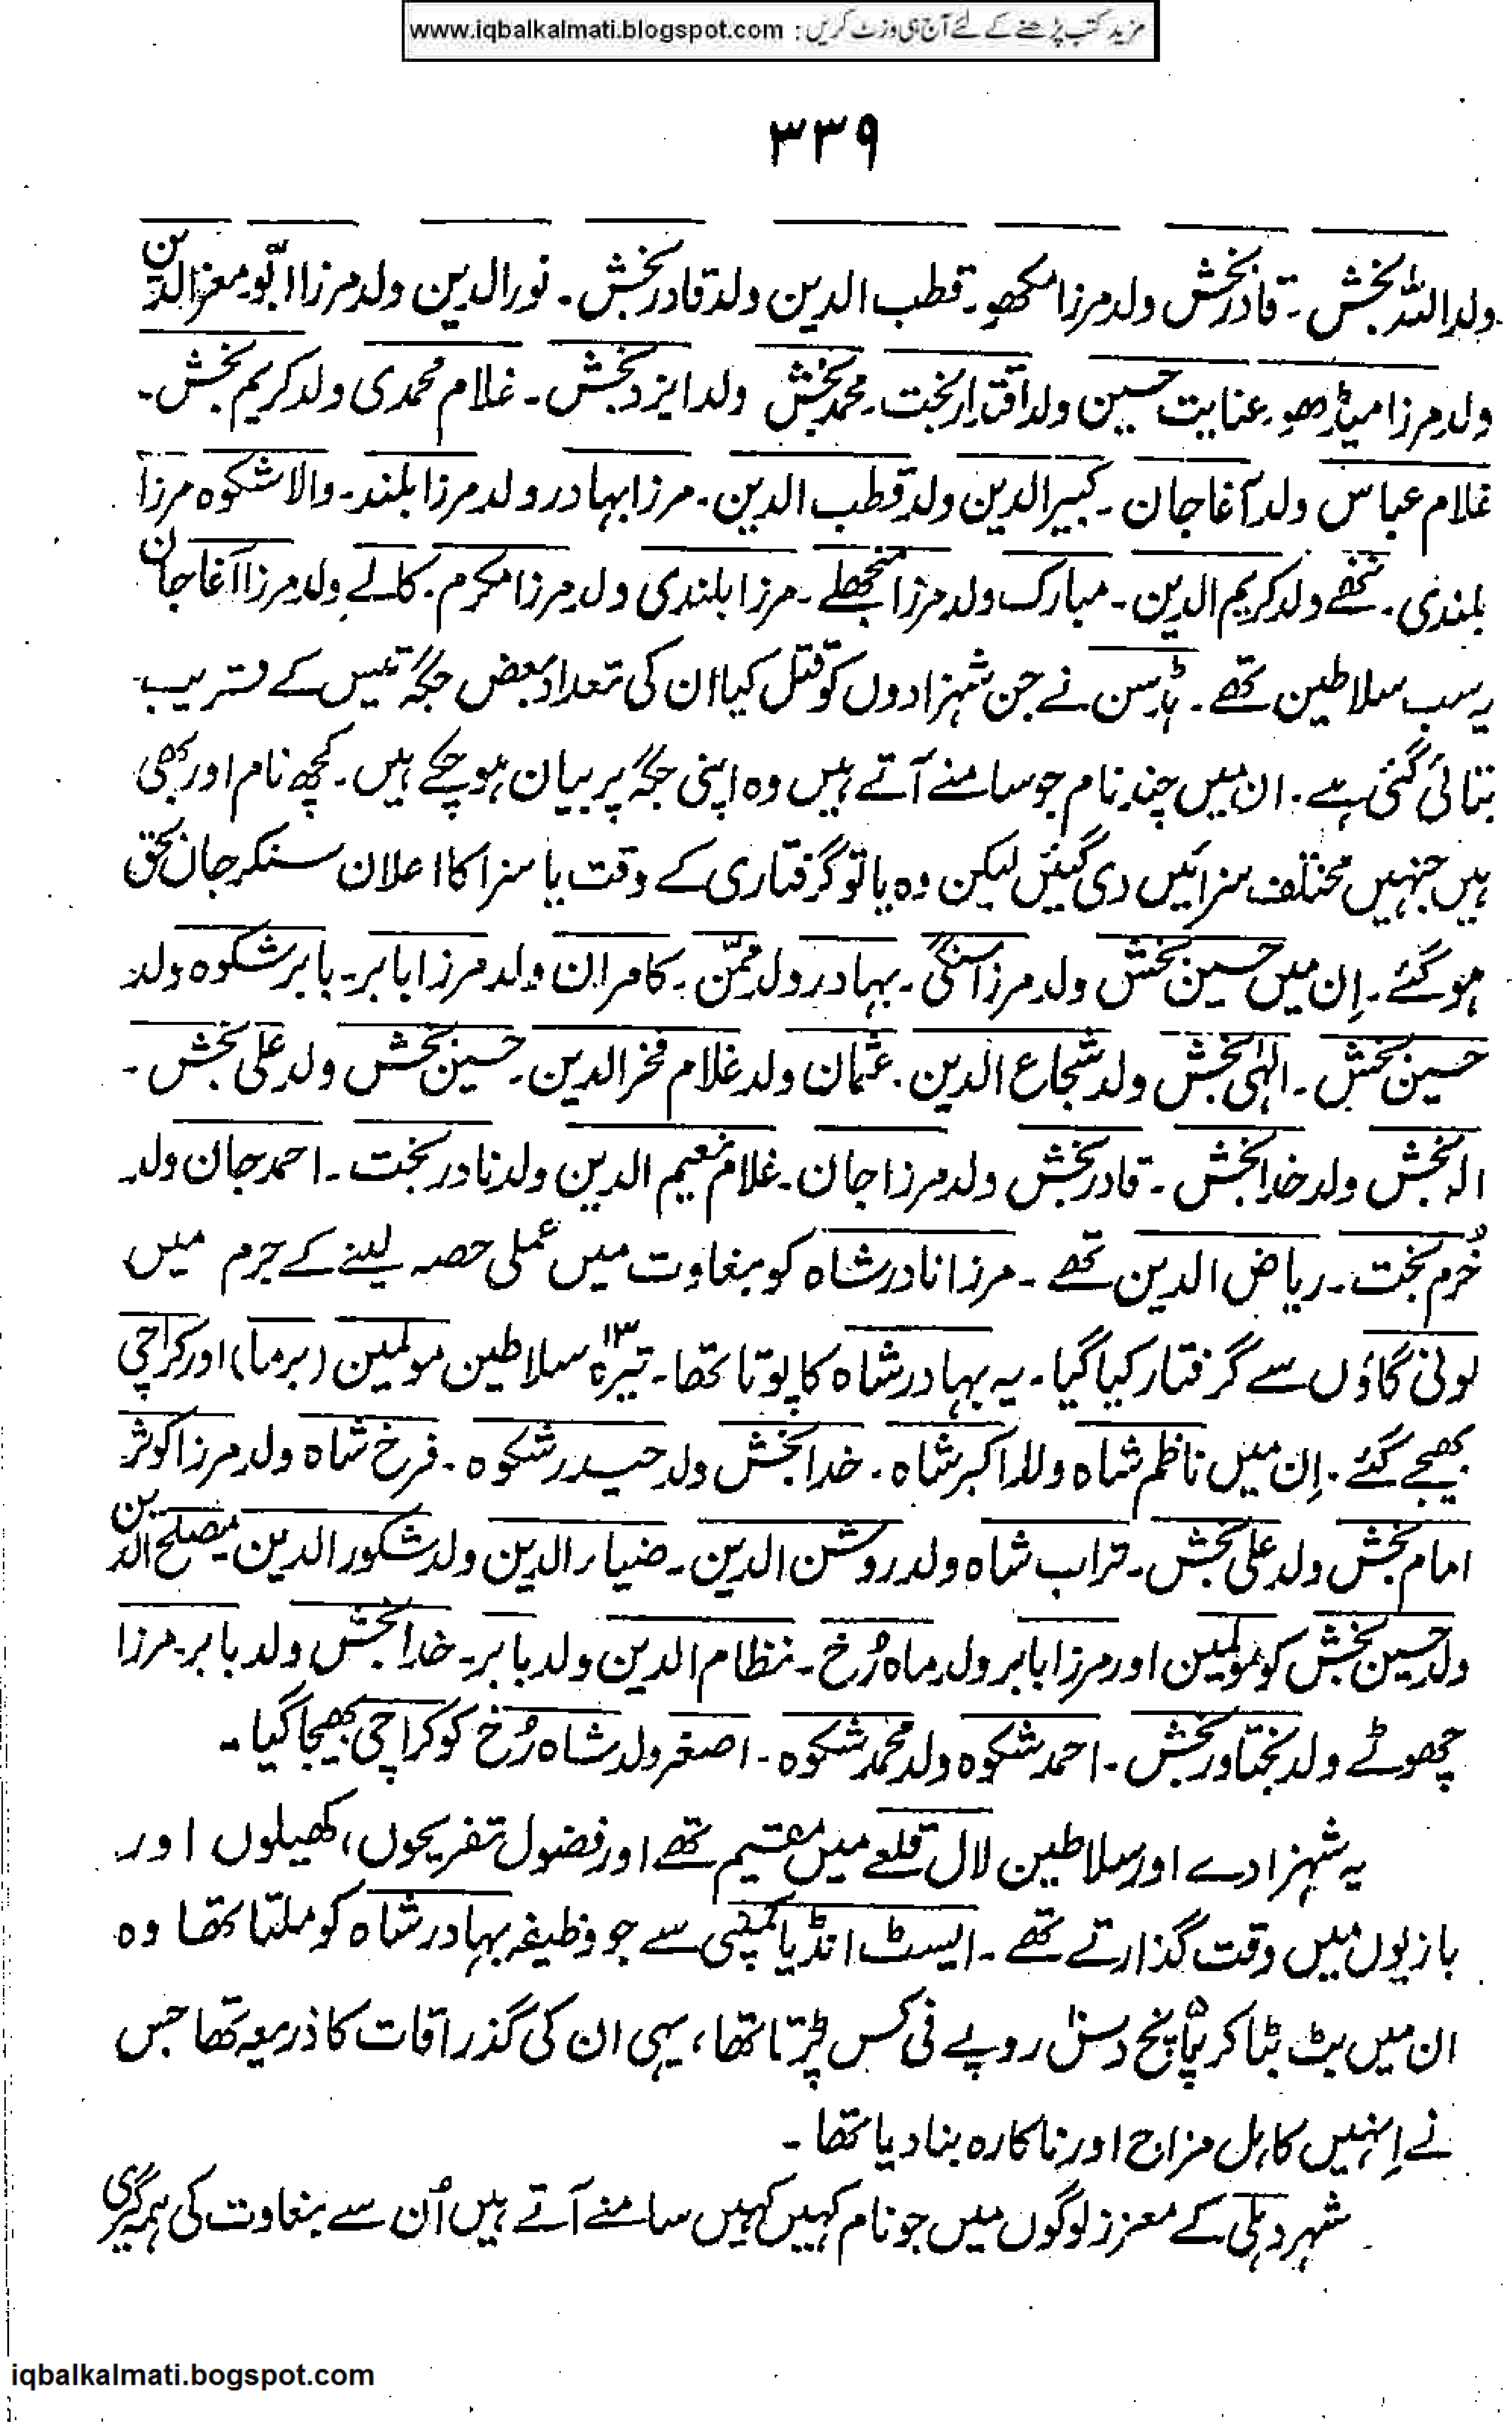 مزید کتب پڑھنے کے لئے آج ہی وزٹ کریں : www.iqbalkalmati.blogspot.com
۳۳۹
ولد اللہ بخش۔ قادر بخش ولد مرزا مکھو۔ قطب الدین ولد قادر بخش۔ نور الدین ولد مرزا ابّو۔ معز الدین
ولد مرزا میڈھو۔ عنایت حسین ولد اقتدار بخت۔ محمد بخش ولد ایزد بخش۔ غلام محمدی ولد کریم بخش۔
غلام عباس ولد آغا جان۔ کبیر الدین ولد قطب الدین۔ مرزا بہادر ولد مرزا بلند۔ والا شکوہ مرزا
بلندی۔ ننھے ولد کریم الدین۔ مبارک ولد مرزا منجھلے۔ مرزا بلندی ولد مرزا مکرم۔ کالے ولد مرزا آغا جان
یہ سب سلاطین تھے۔ ہڈسن نے جن شہزادوں کو قتل کیا ان کی تعداد بعض جگہ تیس کے قریب
بتائی گئی ہے۔ ان میں چند نام جو سامنے آتے ہیں وہ اپنی جگہ پر بیان ہو چکے ہیں۔ کچھ نام اور بھی
ہیں جنہیں مختلف سزائیں دی گئیں لیکن وہ یا تو گرفتاری کے وقت یا سزا کا اعلان سنکر جان بحق
ہو گئے۔ اِن میں حسین بخش ولد مرزا سنگی۔ بہادر ولد ممّن۔ کامران ولد مرزا بابر۔ بابر شکوہ ولد
حسین بخش۔ الٰہی بخش ولد شجاع الدین۔ عثمان ولد غلام فخر الدین۔ حسین بخش ولد علی بخش۔
الہ بخش ولد خدا بخش۔ قادر بخش ولد مرزا جان۔ غلام نعیم الدین ولد نادر بخت۔ احمد جان ولد
خُرم بخت۔ ریاض الدین تھے۔ مرزا نادر شاہ کو بغاوت میں عملی حصہ لینے کے جرم میں
لونی گاؤں سے گرفتار کیا گیا۔ یہ بہادر شاہ کا پوتا تھا۔ تیرہ ۱۳ سلاطین مولمین (برما) اور کراچی
بھیجے گئے۔ اِن میں ناظم شاہ ولد اکبر شاہ۔ خدا بخش ولد حیدر شکوہ۔ فرخ شاہ ولد مرزا کوثر
امام بخش ولد علی بخش۔ تراب شاہ ولد روشن الدین۔ ضیاء الدین ولد شکور الدین۔ مصلح الدین
ولد حسین بخش کو مولمین اور مرزا بابر ولد ماہ رُخ۔ نظام الدین ولد بابر۔ خدا بخش ولد بابر۔ مرزا
چھوٹے ولد بختاور بخش۔ احمد شکوہ ولد محمد شکوہ۔ اصغر ولد شاہ رُخ کو کراچی بھیجا گیا۔
یہ شہزادے اور سلاطین لال قلعے میں مقیم تھے اور فضول تفریحوں، کھیلوں اور
بازیوں میں وقت گذارتے تھے۔ ایسٹ انڈیا کمپنی سے جو وظیفہ بہادر شاہ کو ملتا تھا وہ
ان میں بٹ بٹا کر پانچ ۵ دس ۱۰ روپے فی کس پڑتا تھا، یہی ان کی گذر اقات کا ذریعہ تھا جس
نے اِنہیں کاہل مزاج اور ناکارہ بنا دیا تھا۔
شہر دہلی کے معزز لوگوں میں جو نام کہیں کہیں سامنے آتے ہیں اُن سے بغاوت کی ہمہ گیری
iqbalkalmati.bogspot.com